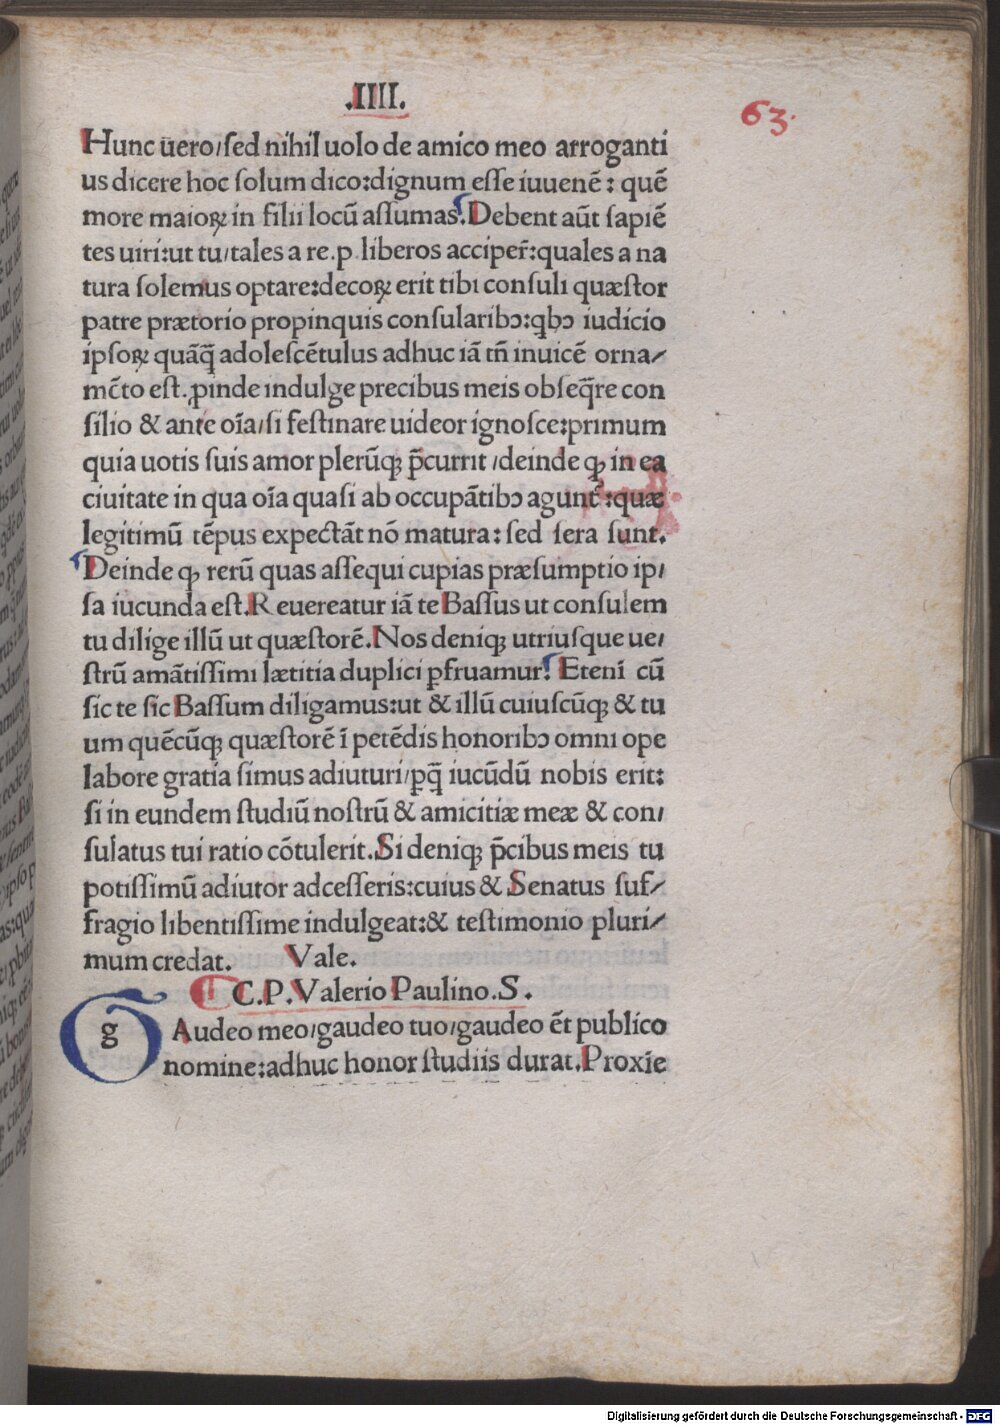 .IIII.
63.
Hunc ūero/ſed nihil uolo de amico meo arroganti
us dicere hoc ſolum dico:dignum eſſe iuuenē: quē
more maioꝝ in filii locū aſſumas.Debent aūt ſapiē
tes uiri:ut tu/tales a re.p liberos acciper̄:quales a na
tura ſolemus optare:decoꝝ erit tibi conſuli quæſtor
patre prætorio propinquis conſularibꝰ:qbꝰ iudicio
ipſoꝝ quāq̄ adoleſcētulus adhuc iā tn̄ inuicē orna⸗
mēto eſt.ꝓinde indulge precibus meis obſeq̄re con
ſilio & ante oīa/ſi feſtinare uideor ignoſce:primum
quia uotis ſuis amor plerūqꝫ p̄currit/deinde qꝫ in ea
ciuitate in qua oīa quaſi ab occupātibꝰ agunt̄:quæ
legitimū tēpus expectāt nō matura: ſed ſera ſunt.
Deinde qꝫ rerū quas aſſequi cupias præſumptio ip/
ſa iucunda eſt.Reuereatur iā te Baſſus ut conſulem
tu dilige illū ut quæſtorē.Nos deniqꝫ utriuſque ue/
ſtrū amātiſſimi lætitia duplici ꝑfruamur. Etenī cū
ſic te ſic Baſſum diligamus:ut & illū cuiuſcūqꝫ & tu
um quēcūqꝫ quæſtorē ī petēdis honoribꝰ omni ope
labore gratia ſimus adiuturi/ꝑq̄ iucūdū nobis erit:
ſi in eundem ſtudiū noſtrū & amicitiæ meæ & con/
ſulatus tui ratio cōtulerit.Si deniqꝫ p̄cibus meis tu
potiſſimū adiutor adceſſeris:cuius & Senatus ſuf⸗
fragio libentiſſime indulgeat:& teſtimonio pluri⸗
mum credat. Vale.
C.P.Valerio Paulino.S.
g Audeo meo/gaudeo tuo/gaudeo ēt publico
nomine:adhuc honor ſtudiis durat.Proxīe
Digitalisierung gefördert durch die Deutsche Forschungsgemeinschaft - DFG